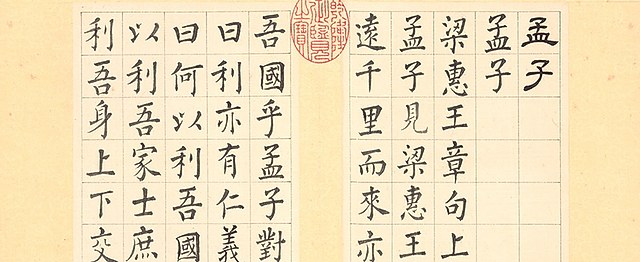 孟子
孟子
梁惠王章句上
孟子見梁惠王
遠千里而來亦
乾隆
御覽
之寶
吾國乎孟子對
曰利亦有仁義
曰何以利吾國
以利吾家士庶
利吾身上下交